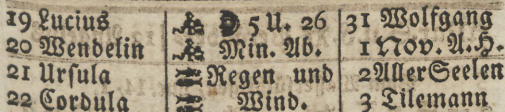 19 Lucius 5 U. 26 31 Wolfgang
20 Wendelin Min. Ab. 1 Nov. A.H.
21 Ursula Regen und 2 Aller Seelen
22 Cordula Wind. 3 Tilemann